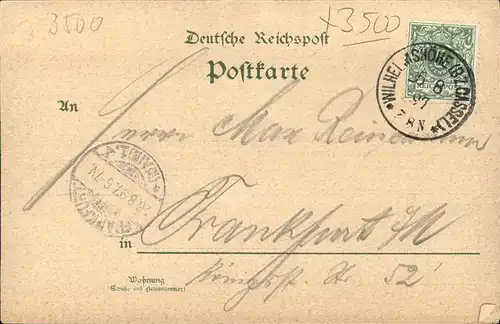 3500
x3500
Deutsche Reichspost
Postkarte
WILHELMSHÖHE (BZ. CASSEL)
6 8
97
7-8 N
An
Herrn Max
FRANKFURT (MAIN)
8.97
6-7N
in Frankfurt a/M
Wohnung
(Straße und Hausnummer)
Königst. Nr. 52